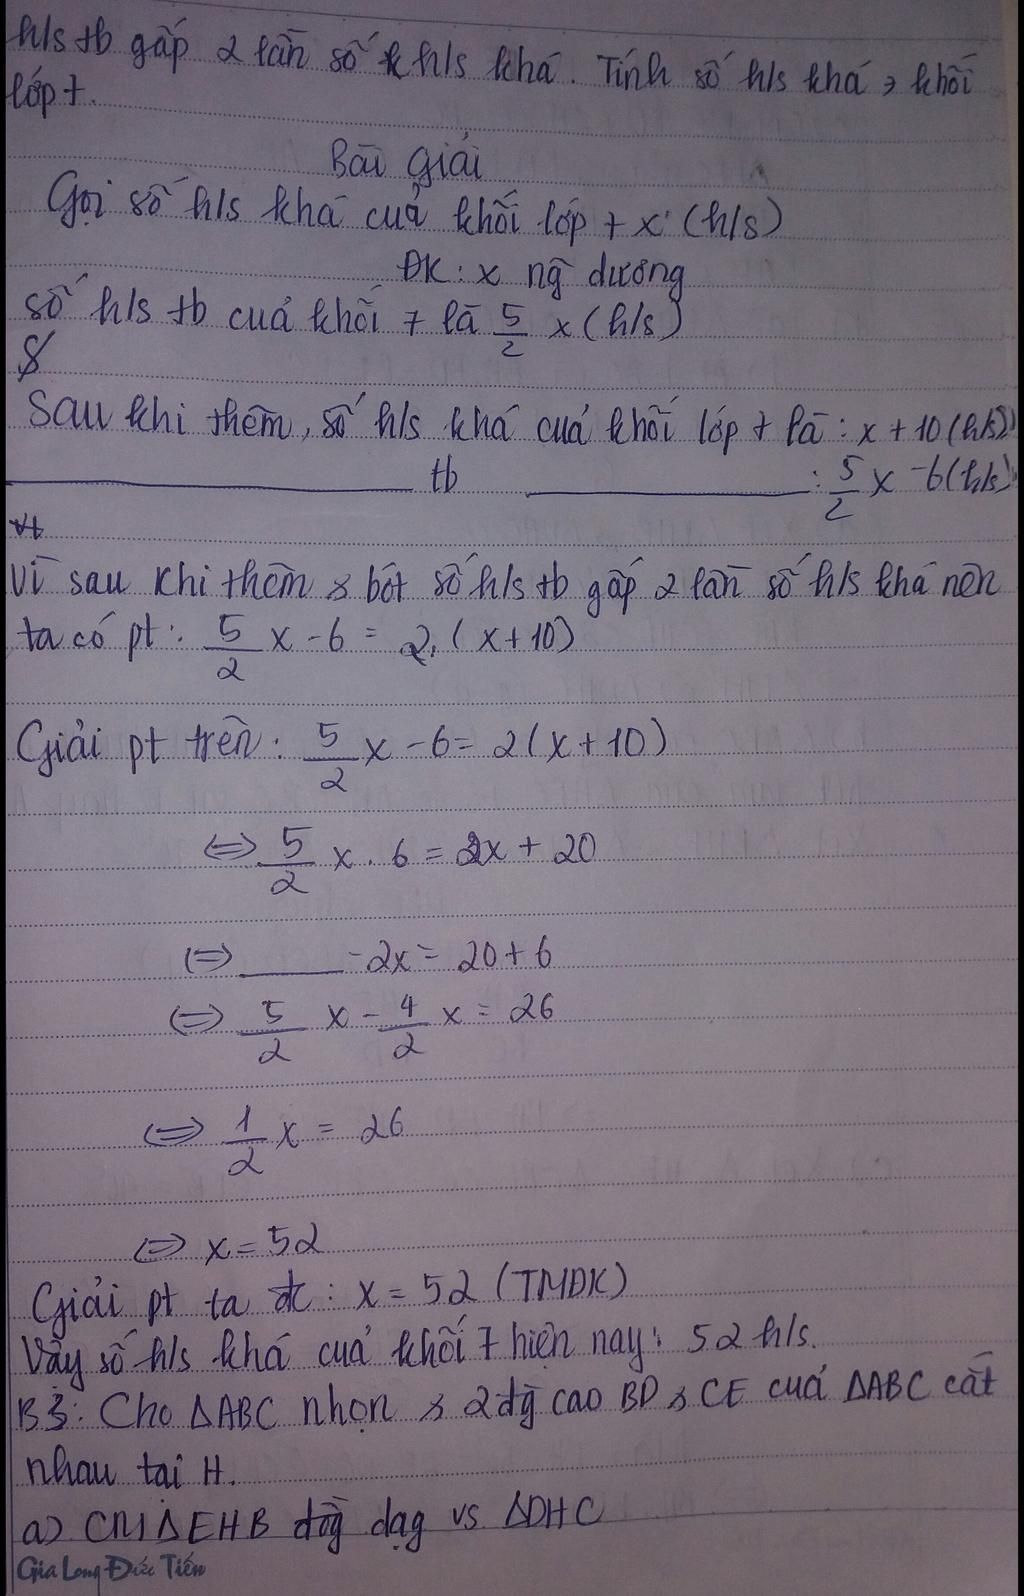 h/s tb gấp 2 lần số h/s khá. Tính số h/s khá , khối
lớp 7.
Bài giải
Gọi số h/s khá của khối lớp 7 x (h/s)
ĐK: x ng dương
số h/s tb của khối 7 là 5/2 x (h/s)
Sau khi thêm, số h/s khá của khối lớp 7 là : x + 10 (h/s)
tb : 5/2 x - 6 (h/s)
Vì sau khi thêm & bớt số h/s tb gấp 2 lần số h/s khá nên
ta có pt: 5/2 x - 6 = 2. (x + 10)
Giải pt trên: 5/2 x - 6 = 2(x + 10)
<=> 5/2 x . 6 = 2x + 20
<=> ___ - 2x = 20 + 6
<=> 5/2 x - 4/2 x = 26
<=> 1/2 x = 26
<=> x = 52
Giải pt ta đc : x = 52 (TMĐK)
Vậy số h/s khá của khối 7 hiện nay: 52 h/s.
B3: Cho ΔABC nhọn & 2 đg cao BD & CE của ΔABC cắt
nhau tại H.
a) CM ΔEHB đồg dạg vs ΔDHC
Gia Long Đức Tiến